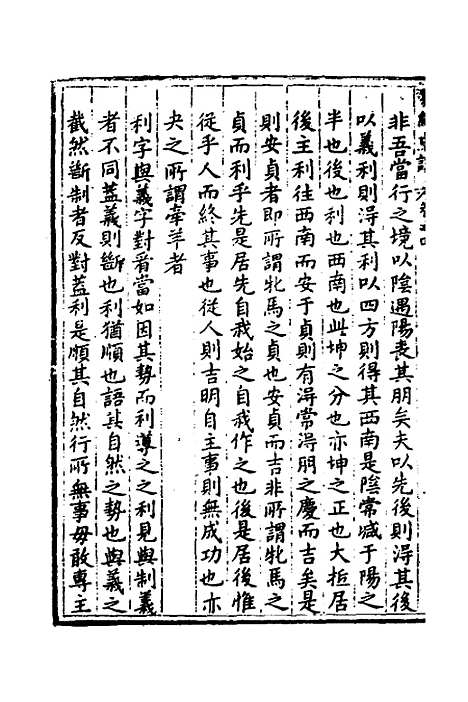 非吾當行之境以陰遇陽喪其朋矣夫以先後則淂其後
以義利則淂其利以四方則得其西南是陰常减于陽之
半也後也利也西南也此坤之分也亦坤之正也大抵居
後主利往西南而安于貞則有淂常淂朋之慶而吉矣是
則安貞者即所謂牝馬之貞也安貞而吉非所謂牝馬之
貞而利乎先是居先自我始之自我作之也後是居後惟
從乎人而終其事也從人則吉明自主事則無成功也亦
夬之所謂牽羊者
利字與義字對看當如因其勢而利導之之利見與制義
者不同蓋義則斷也利猶順也語其自然之勢也與義之
截然斷制者反對蓋利是順其自然行所無事毋敢專主